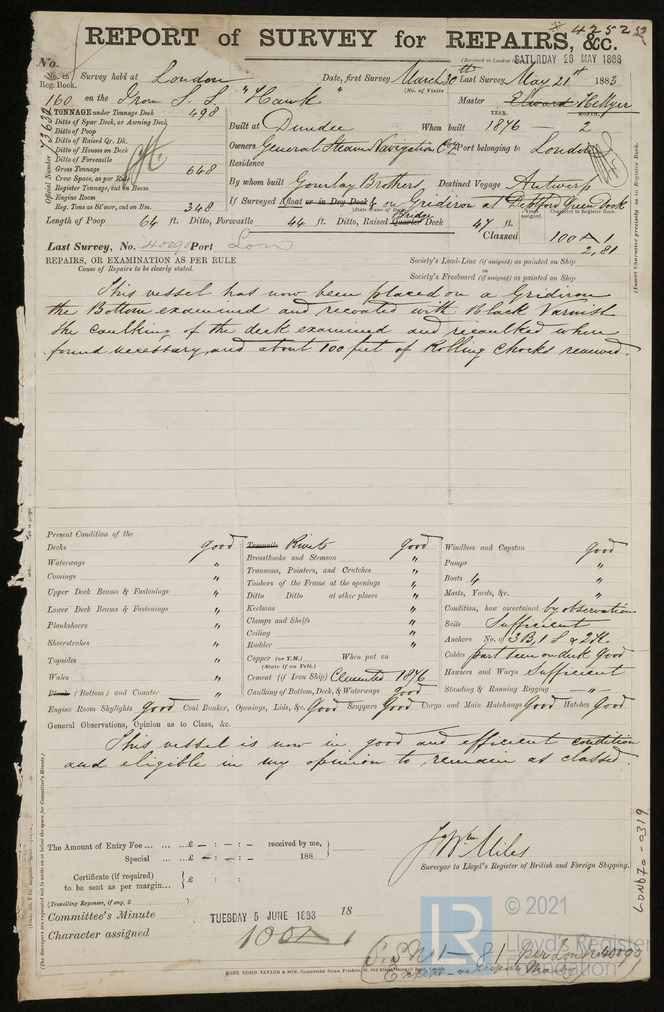 42525
REPORT of SURVEY for REPAIRS, &c.
(Received at London
SATURDAY 26 MAY 1883
No.
No. in Reg. Book. Survey held at London Date, first Survey March 30th Last Survey May 21st 1883
(No. of Visits
160 on the Iron S. S. "Hawk" Master Edward Hellyer
TONNAGE under Tonnage Deck 498
YEAR. MONTH.
Ditto of Spar Deck, or Awning Deck,
Built at Dundee When built 1876 — 2
Ditto of Poop
Ditto of Raised Qr. Dk.
Owners General Steam Navigation Coy Port belonging to London
Ditto of Houses on Deck
Ditto of Forecastle
Residence
Gross Tonnage 648
Crew Space, as per Rule
By whom built Gourlay Brothers Destined Voyage Antwerp
Register Tonnage, cut on Beam
Engine Room
If Surveyed Afloat or in Dry Dock & on Gridiron at Deptford Green Dock
(State name of Dock.)
Reg. Tons as St'mer, cut on Bm. 348
Official Number 73632
Years assigned.
Character in Register Book.
Length of Poop 64 ft. Ditto, Forecastle 44 ft. Ditto, Raised Quarter Deck 47 ft.
Classed 100 A 1
2,81
(Insert Character precisely as in Register Book.
Last Survey, No. 40090 Port Lon
REPAIRS, OR EXAMINATION AS PER RULE
Cause of Repairs to be clearly stated.
Society's Load-Line (if assigned) as painted on Ship
or
Society's Freeboard (if assigned) as painted on Ship
This vessel has now been placed on a Gridiron
the Bottom examined and recoated with Black Varnish
the caulking of the deck examined and recaulked where
found necessary, and about 100 feet of Rolling Chocks renewed.
Present Condition of the
Decks good
Waterways "
Comings "
Upper Deck Beams & Fastenings "
Lower Deck Beams & Fastenings "
Planksheers "
Sheerstrakes "
Topsides "
Wales "
Plank (Bottom) and Counter "
Treenails Rivets good
Breasthooks and Stemson "
Transoms, Pointers, and Crutches "
Timbers of the Frame at the openings "
Ditto Ditto at other places "
Keelsons "
Clamps and Shelfs "
Ceiling "
Rudder "
Copper (or Y.M.) When put on
(State if on Felt.)
Cement (if Iron Ship) Cemented 1876
Caulking of Bottom, Deck, & Waterways good
Windlass and Capstan good
Pumps "
Boats 4 "
Masts, Yards, &c. "
Condition, how ascertained by observation
Sails Sufficient
Anchors No. of 3 B, 1 S & 2 K
Cables part seen on deck good
Hawsers and Warps Sufficient
Standing & Running Rigging — " —
Engine Room Skylights good Coal Bunker, Openings, Lids, &c. Good Scuppers Good Cargo and Main Hatchways Good Hatches Good
General Observations, Opinion as to Class, &c.
This vessel is now in good and efficient condition
and eligible in my opinion to remain as classed.
The Amount of Entry Fee ... £ - : - : - received by me,
Special ... £ - : - : - 188
Certificate (if required)
to be sent as per margin... £ : :
(Travelling Expenses, if any, £ )
Jos Wm Miles
Surveyor to Lloyd's Register of British and Foreign Shipping.
Committee's Minute TUESDAY 5 JUNE 1883 18
Character assigned 100 A 1
S.S No 1 — 81 per Lon No 40090
LON670-0319
LR
© 2021
Lloyd's Register
Foundation